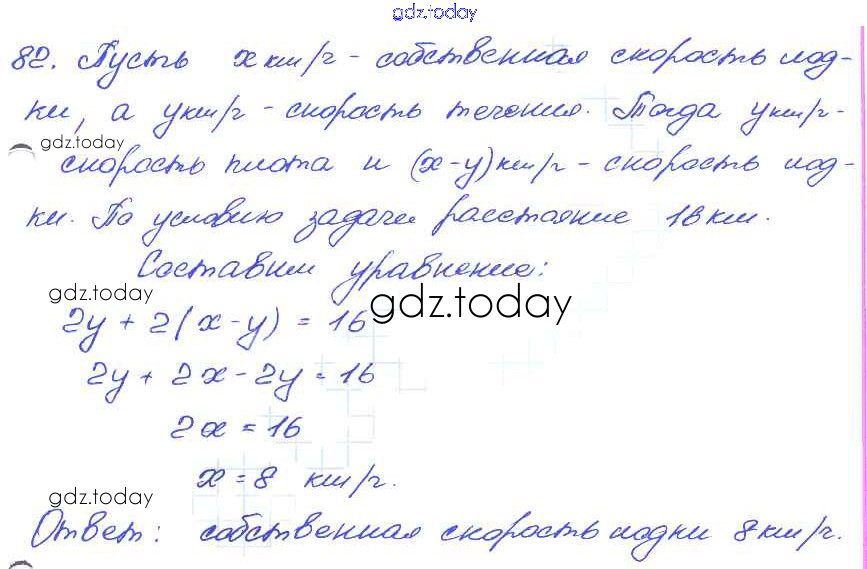 gdz.today
82. Пусть x км/ч - собственная скорость лод-
ки, а y км/ч - скорость течения. Тогда y км/ч -
gdz.today
скорость плота и (x-y) км/ч - скорость лод-
ки. По условию задачи расстояние 18 км.
Составим уравнение:
gdz.today
gdz.today
2y + 2(x-y) = 16
2y + 2x - 2y = 16
2x = 16
x = 8 км/ч.
gdz.today
Ответ: собственная скорость лодки 8 км/ч.